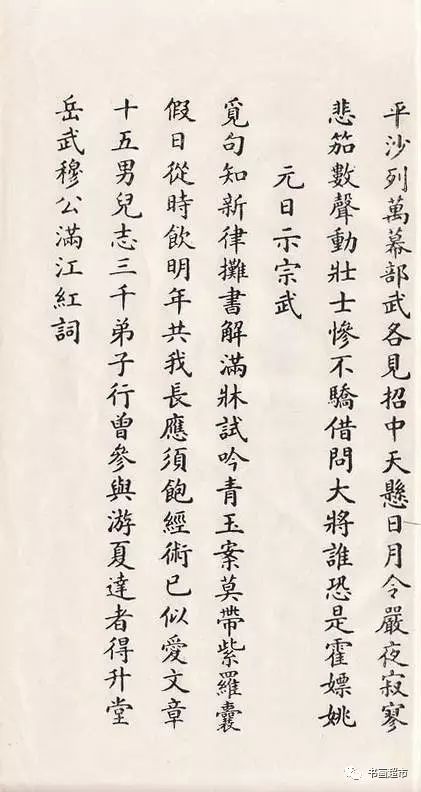 平沙列萬幕部武各見招中天懸日月令嚴夜寂寥
悲笳數聲動壯士慘不驕借問大將誰恐是霍嫖姚
元日示宗武
覓句知新律攤書解滿牀試吟青玉案莫帶紫羅囊
假日從時飲明年共我長應須飽經術已似愛文章
十五男兒志三千弟子行曾參與游夏達者得升堂
岳武穆公滿江紅詞
书画超市